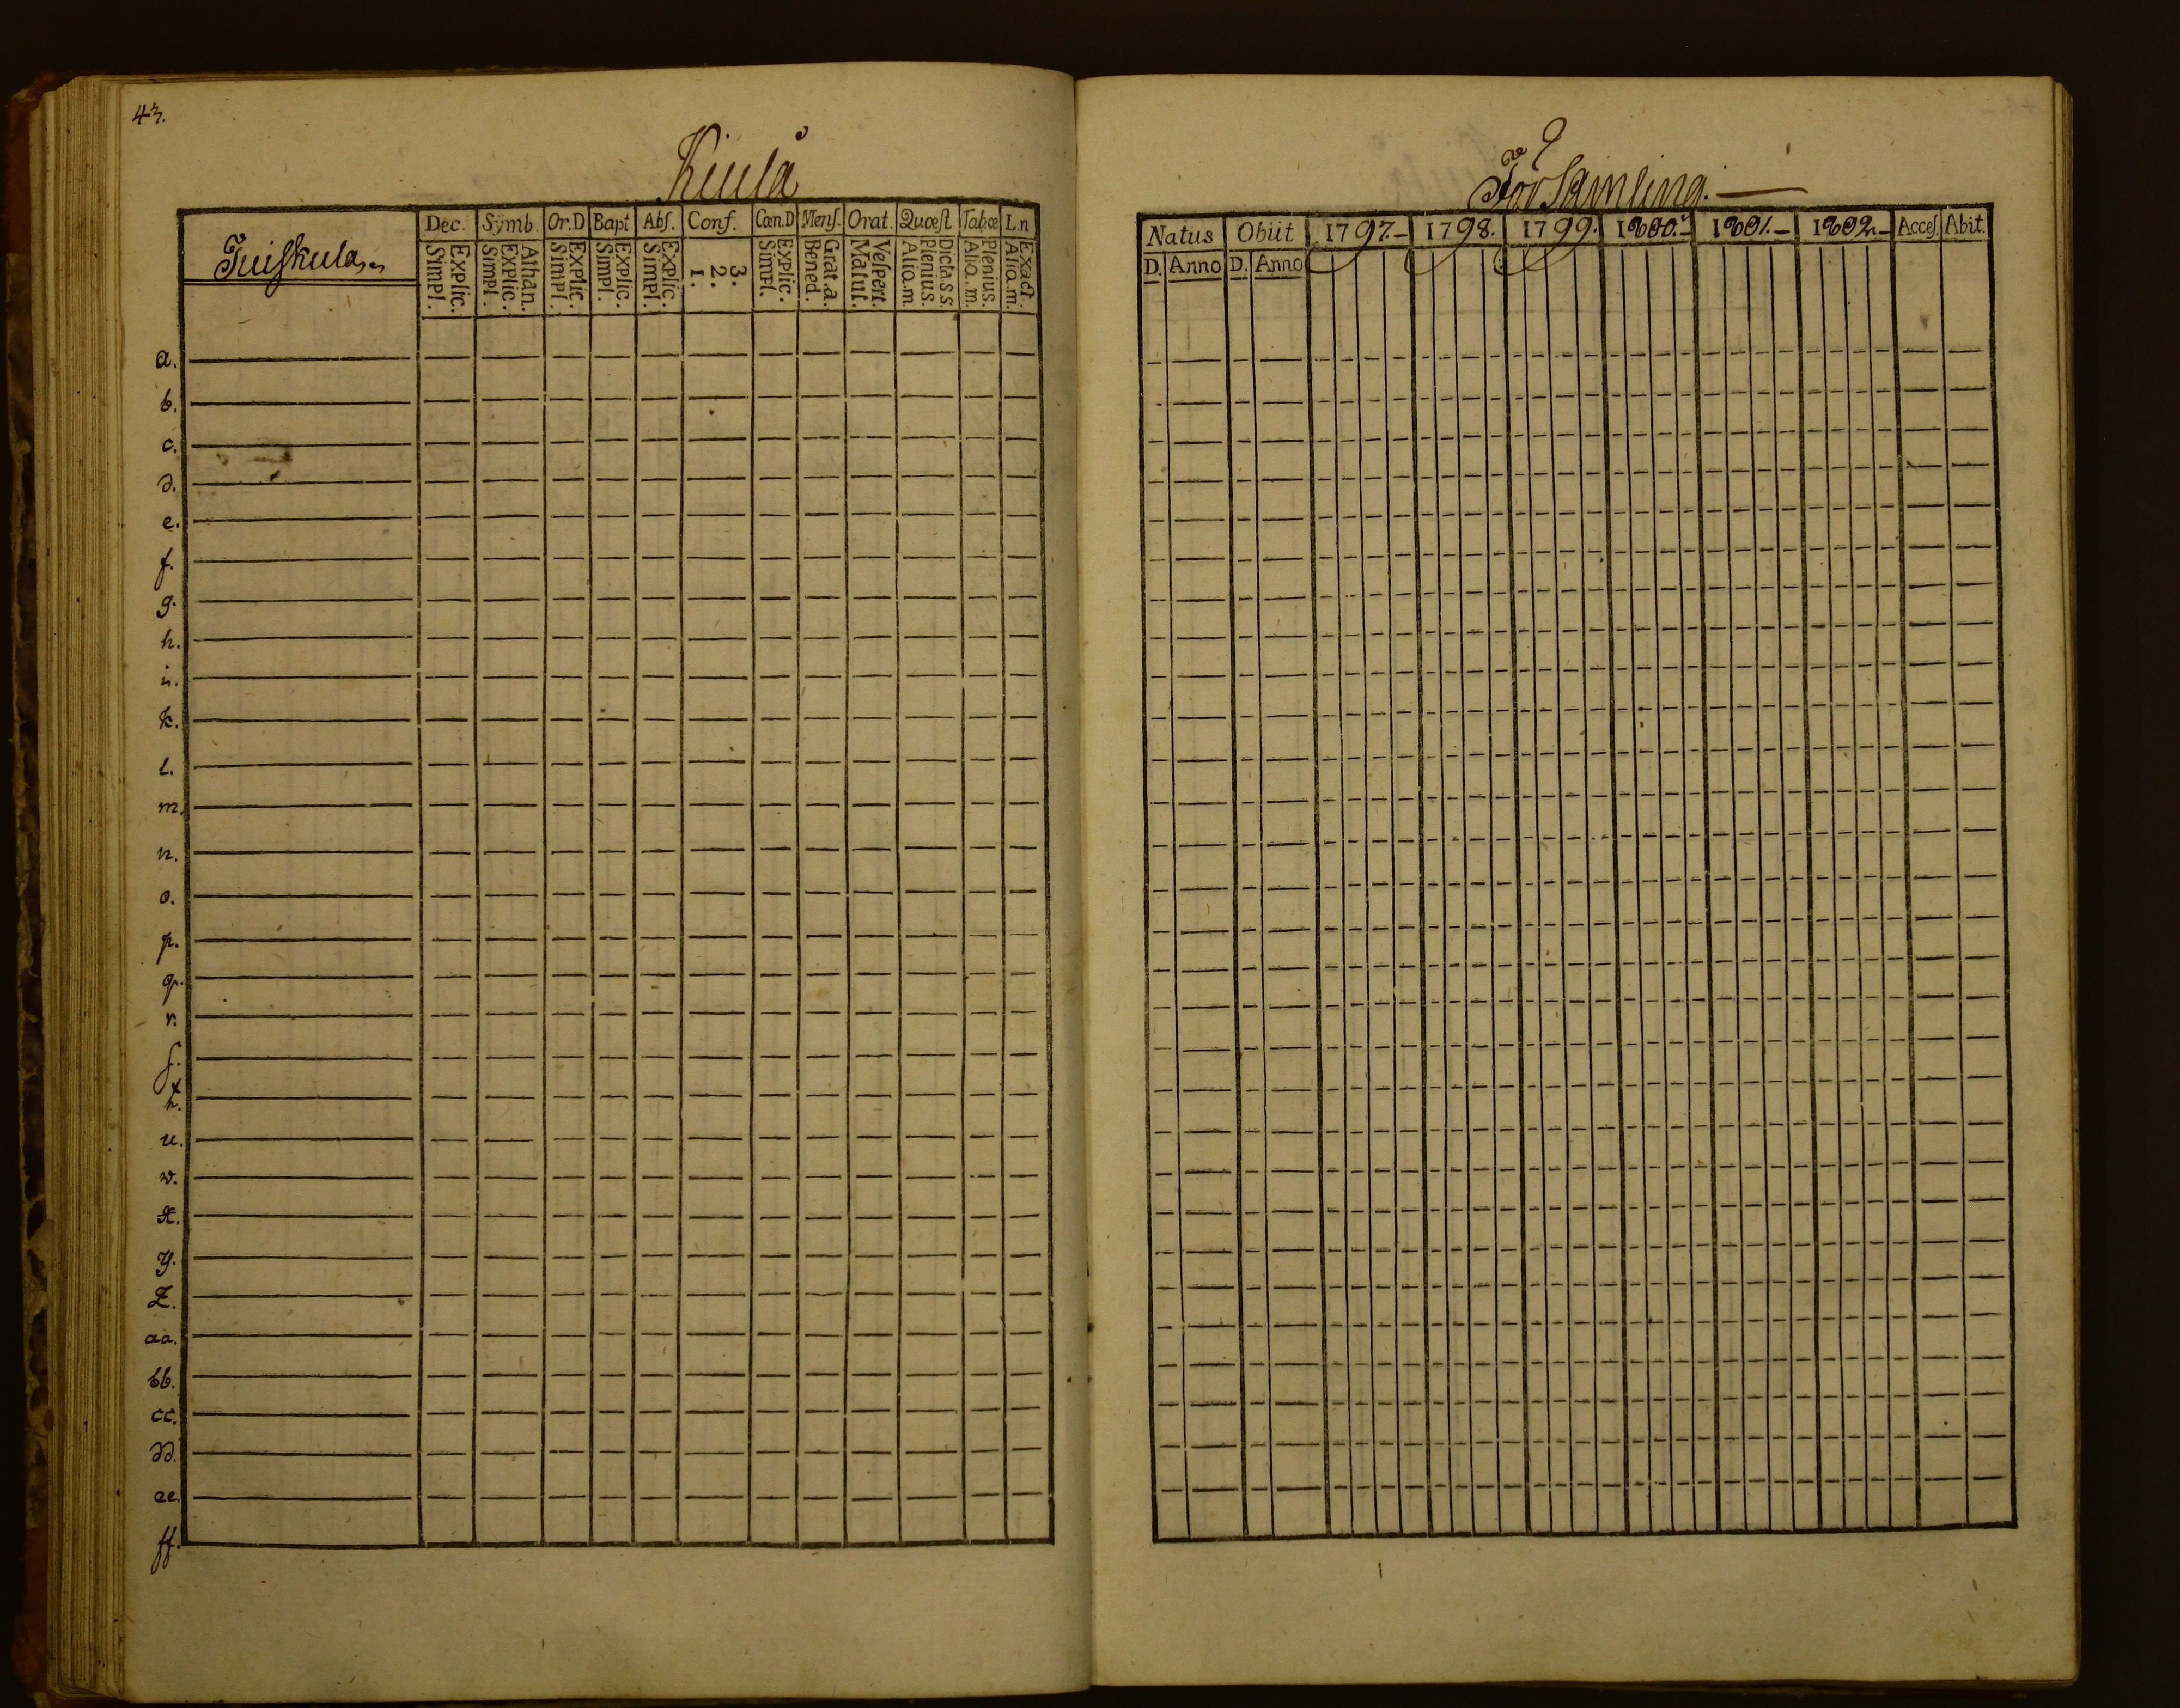 43.
Kiulå
Församling. —
Juiskula
Dec. Symb. Or.D Bapt Abſ. Conf. Cœn.D Menſ. Orat. Quœſt Tabœ L.n
Explic. Simpl. Athan. Explic. Simpl. Explic. Simpl. Explic. Simpl. Explic. Simpl. 3. 2. 1. Explic. Simpl. Grat.a. Bened. Veſpert. Matut. Dicta s s. Plenius. Aliq.m. Plenius. Aliq.m. Exact. Aliq.m.
a.
b.
c.
d.
e.
f.
g.
h.
i.
k.
l.
m.
n.
o.
p.
q.
r.
ſ.
t.
u.
w.
x.
y.
Z.
aa.
bb.
cc.
dd.
ee.
ff.
Natus Obiit 1797.- 1798. 1799. 1800.- 1801.- 1802.- Acceſ. Abit.
D. Anno D. Anno